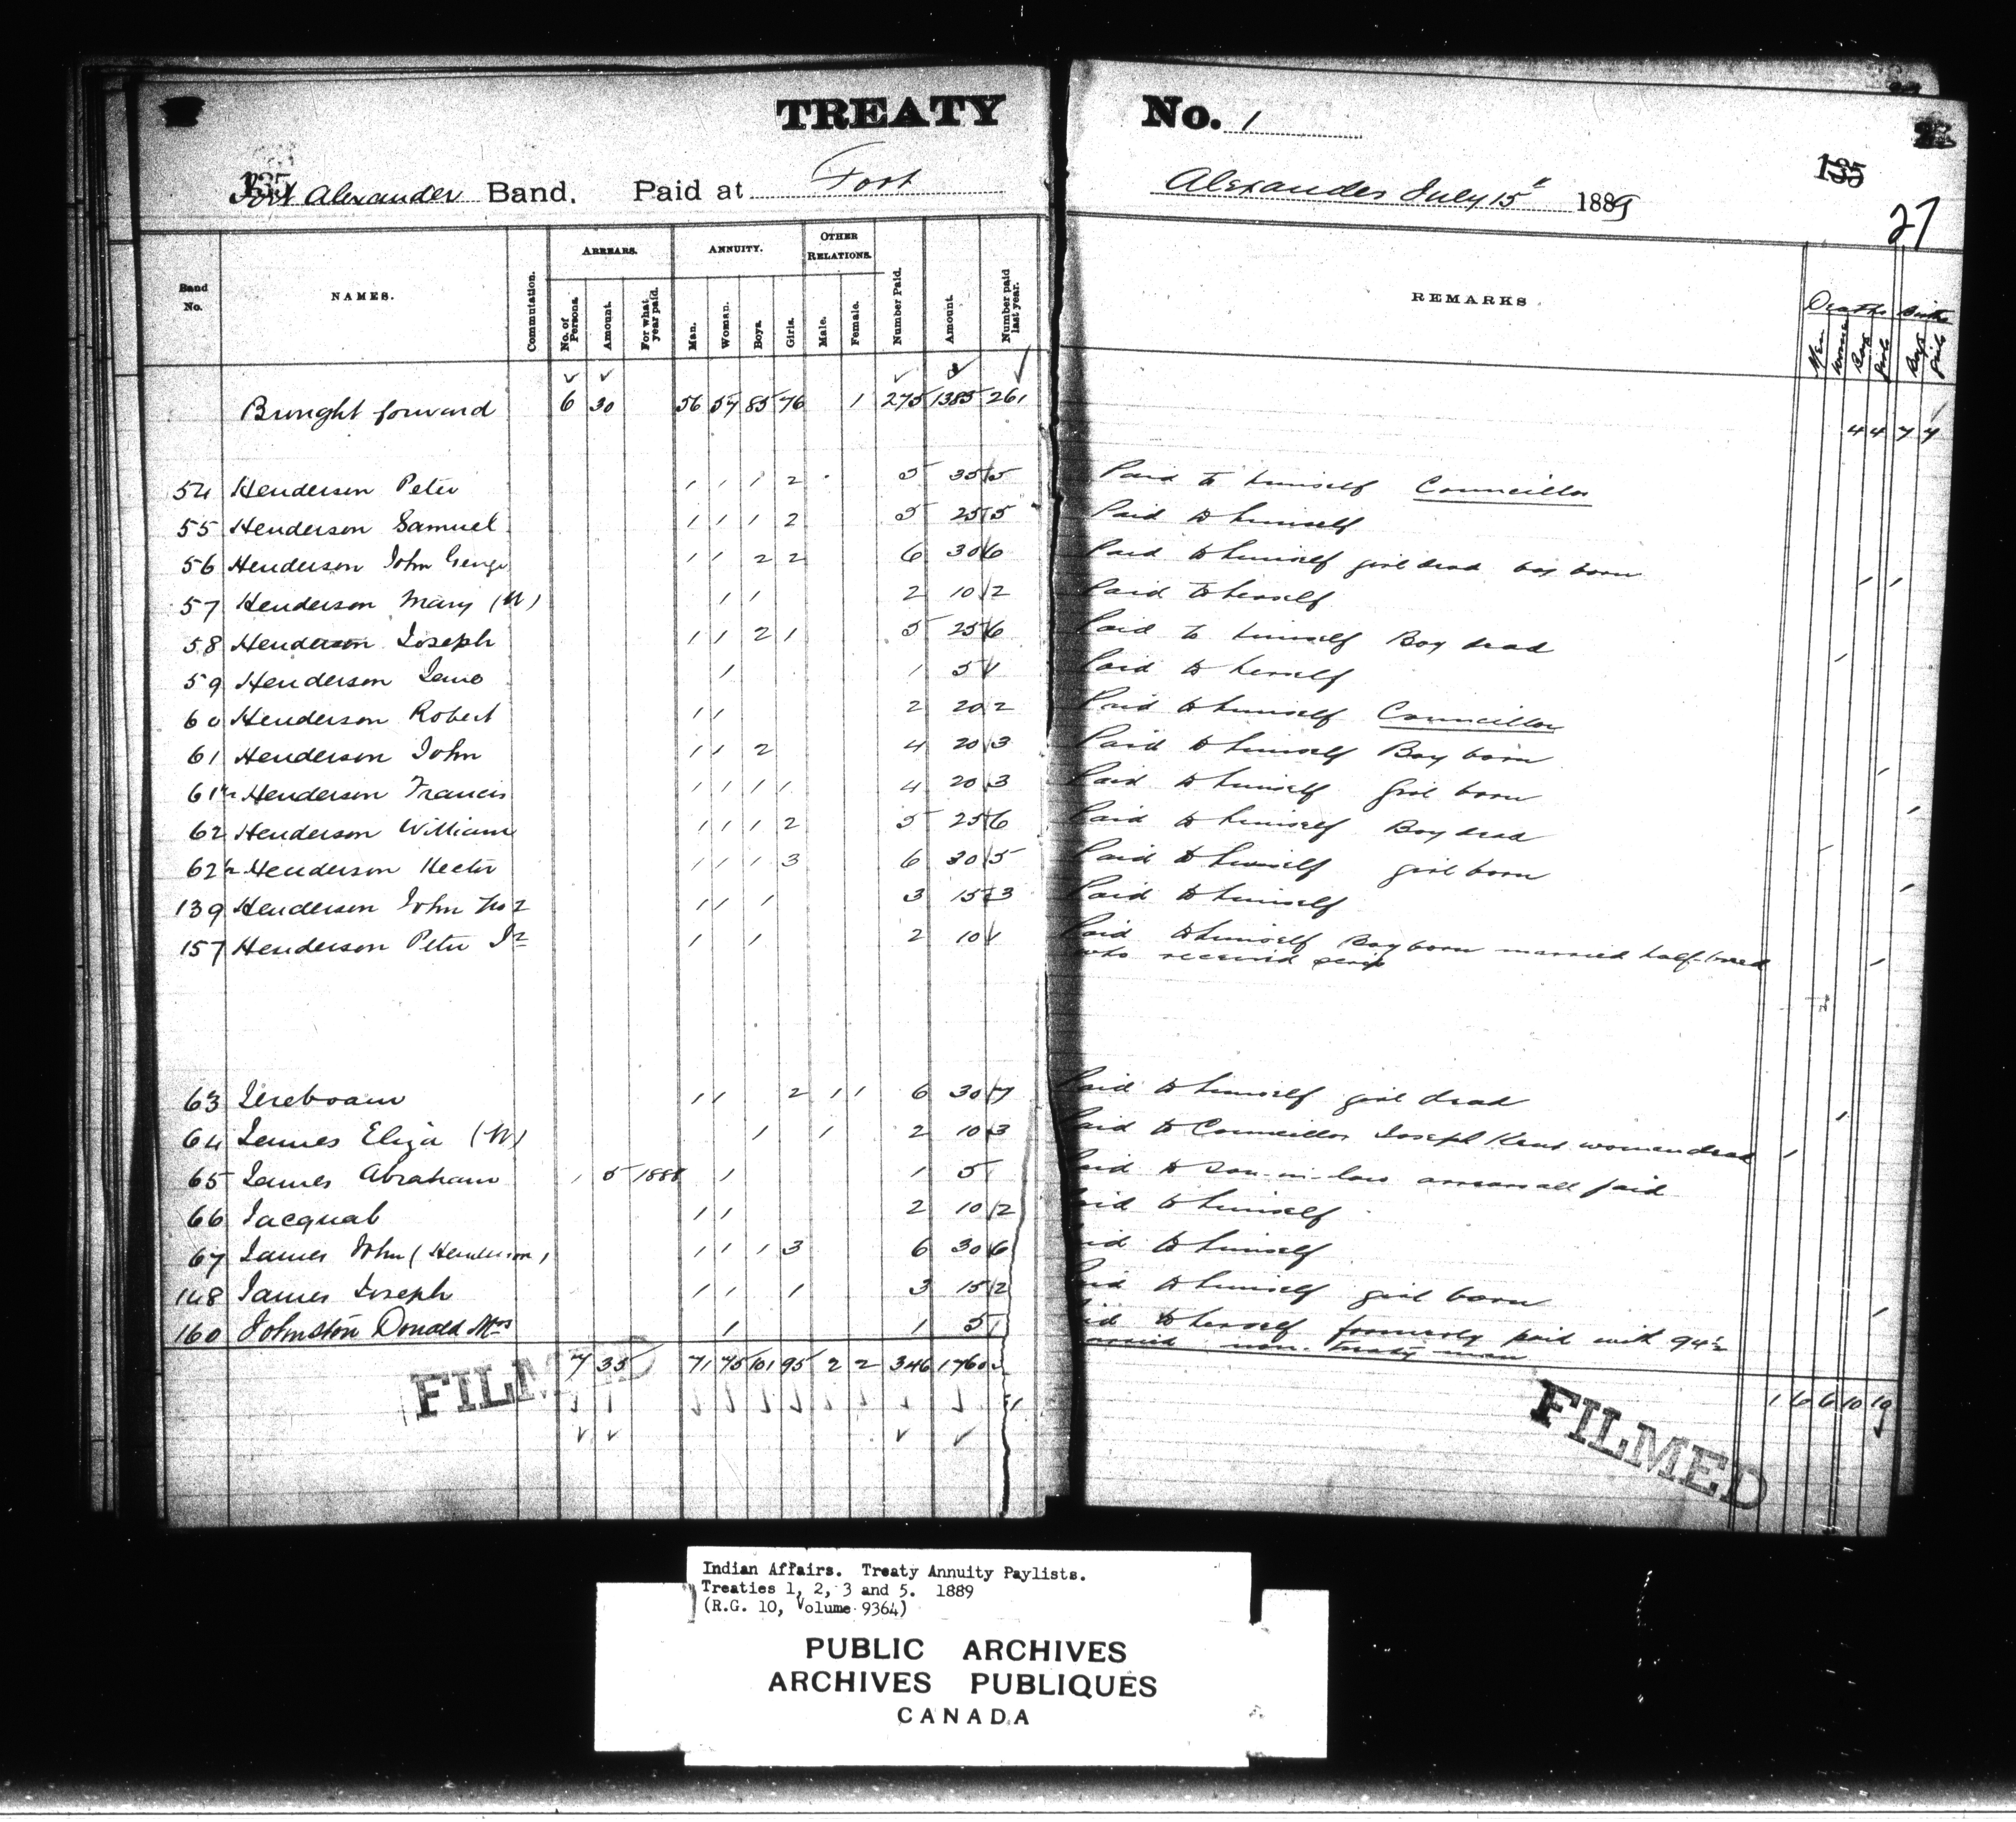 TREATY No. 1
135 135
Fort Alexander Band. Paid at Fort Alexander July 15th 1889
27
Band No. NAMES. Commutation. ARREARS. No. of Persons. Amount. For what year paid. ANNUITY. Man. Woman. Boys. Girls. OTHER RELATIONS. Male. Female. Number Paid. Amount. Number paid last year. REMARKS Deaths Births Men Women Boys Girls Boys Girls
Brought forward 6 30 56 57 85 76 1 275 1385 261 4 4 7 7
54 Henderson Peter 1 1 1 2 5 35 5 Paid to himself Councillor
55 Henderson Samuel 1 1 1 2 5 25 5 Paid to himself
56 Henderson John George 1 1 2 2 6 30 6 Paid to himself girl dead boy born 1 1
57 Henderson Mary (W) 1 1 2 10 2 Paid to herself
58 Henderson Joseph 1 1 2 1 5 25 6 Paid to himself Boy dead 1
59 Henderson Jane 1 1 5 1 Paid to herself
60 Henderson Robert 1 1 2 20 2 Paid to himself Councillor
61 Henderson John 1 1 2 4 20 3 Paid to himself Boy born 1
61½ Henderson Francis 1 1 1 1 4 20 3 Paid to himself Girl born 1
62 Henderson William 1 1 1 2 5 25 6 Paid to himself Boy dead 1
62½ Henderson Hector 1 1 1 3 6 30 5 Paid to himself girl born 1
139 Henderson John No 2 1 1 1 3 15 3 Paid to himself
157 Henderson Peter Jr 1 1 2 10 1 Paid to himself Boy born married half-breed
who received scrip 1
63 Jereboam 1 1 2 1 1 6 30 7 Paid to himself girl dead 1
64 James Eliza (W) 1 1 2 10 3 Paid to Councillor Joseph Kent woman dead 1
65 James Abraham 1 5 1888 1 1 5 Paid to son-in-law arrears all paid
66 Jacquab 1 1 2 10 2 Paid to himself
67 James John (Henderson) 1 1 1 3 6 30 6 Paid to himself
148 James Joseph 1 1 1 3 15 2 Paid to himself girl born 1
160 Johnston Donald Mrs 1 1 5 Paid to herself formerly paid with 94½
married non-Treaty man
7 35 71 75 101 95 2 2 346 1760 1 6 6 10 19
FILMED FILMED
Indian Affairs. Treaty Annuity Paylists.
Treaties 1, 2, 3 and 5. 1889
(R.G. 10, Volume 9364)
PUBLIC ARCHIVES
ARCHIVES PUBLIQUES
CANADA